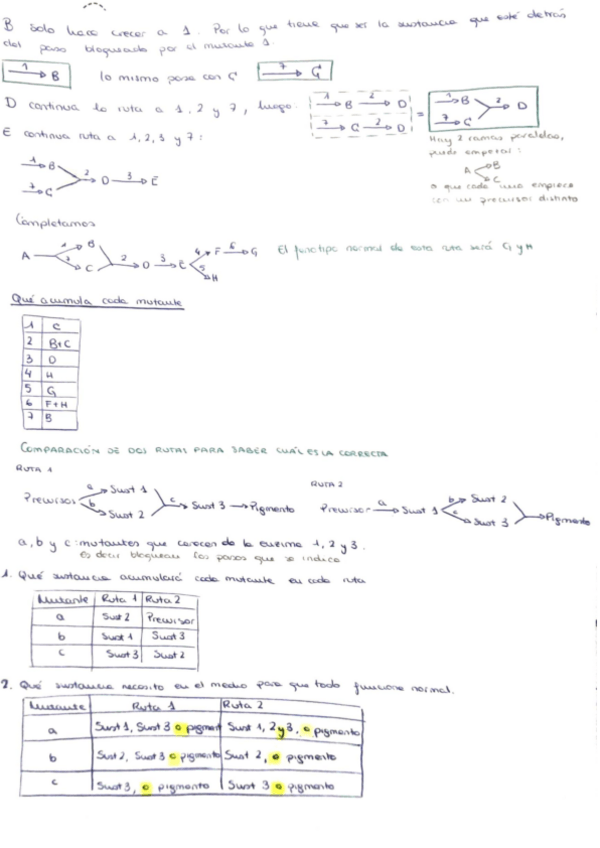 B solo hace crecer a 1. Por lo que tiene que ser la sustancia que esté detrás
del paso bloqueado por el mutante 1.
1 B lo mismo pasa con C 7 C
D continua la ruta a 1, 2 y 7, luego: 1 B 2 D = 1 B 2 D
7 C 2 D 7 C
E continua ruta a 1, 2, 3 y 7:
Hay 2 ramas paralelas,
puede empezar:
A B
C
o que cada una empiece
con un precursor distinto
1 B 2 D 3 E
7 C
Completamos
A 1 B 2 D 3 E 4 F 6 G El fenotipo normal de esta ruta será G y H
7 C 5 H
Qué acumula cada mutante
1 C
2 B+C
3 D
4 H
5 G
6 F+H
7 B
COMPARACIÓN DE DOS RUTAS PARA SABER CUÁL ES LA CORRECTA
RUTA 1
RUTA 2
Precursor a Sust 1 c Sust 3 Pigmento
b Sust 2
Precursor a Sust 1 b Sust 2 Pigmento
c Sust 3
a, b y c: mutantes que carecen de la enzima 1, 2 y 3.
Es decir bloquean los pasos que se indica
1. Qué sustancia acumulará cada mutante en cada ruta
Mutante Ruta 1 Ruta 2
a Sust 2 Precursor
b Sust 1 Sust 3
c Sust 3 Sust 2
2. Qué sustancia necesito en el medio para que todo funcione normal.
Mutante Ruta 1 Ruta 2
a Sust 1, Sust 3 o pigment Sust 1, 2 y 3, o pigmento
b Sust 2, Sust 3 o pigmento Sust 2, o pigmento
c Sust 3, o pigmento Sust 3 o pigmento